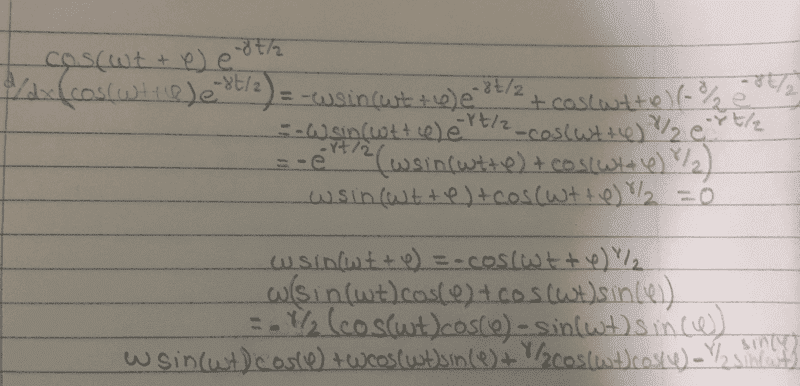 cos(ωt + φ) e^-γt/2
d/dx(cos(ωt+φ)e^-γt/2) = -ωsin(ωt+φ)e^-γt/2 + cos(ωt+φ)(-γ/2 e^-γt/2)
= -ωsin(ωt+φ)e^-γt/2 - cos(ωt+φ) γ/2 e^-γt/2
= -e^-γt/2 (ωsin(ωt+φ) + cos(ωt+φ) γ/2)
ωsin(ωt+φ) + cos(ωt+φ) γ/2 = 0
ωsin(ωt+φ) = -cos(ωt+φ) γ/2
ω(sin(ωt)cos(φ) + cos(ωt)sin(φ))
= -γ/2 (cos(ωt)cos(φ) - sin(ωt)sin(φ))
ωsin(ωt)cos(φ) + ωcos(ωt)sin(φ) + γ/2cos(ωt)cos(φ) - γ/2 sin(ωt) sin(φ)